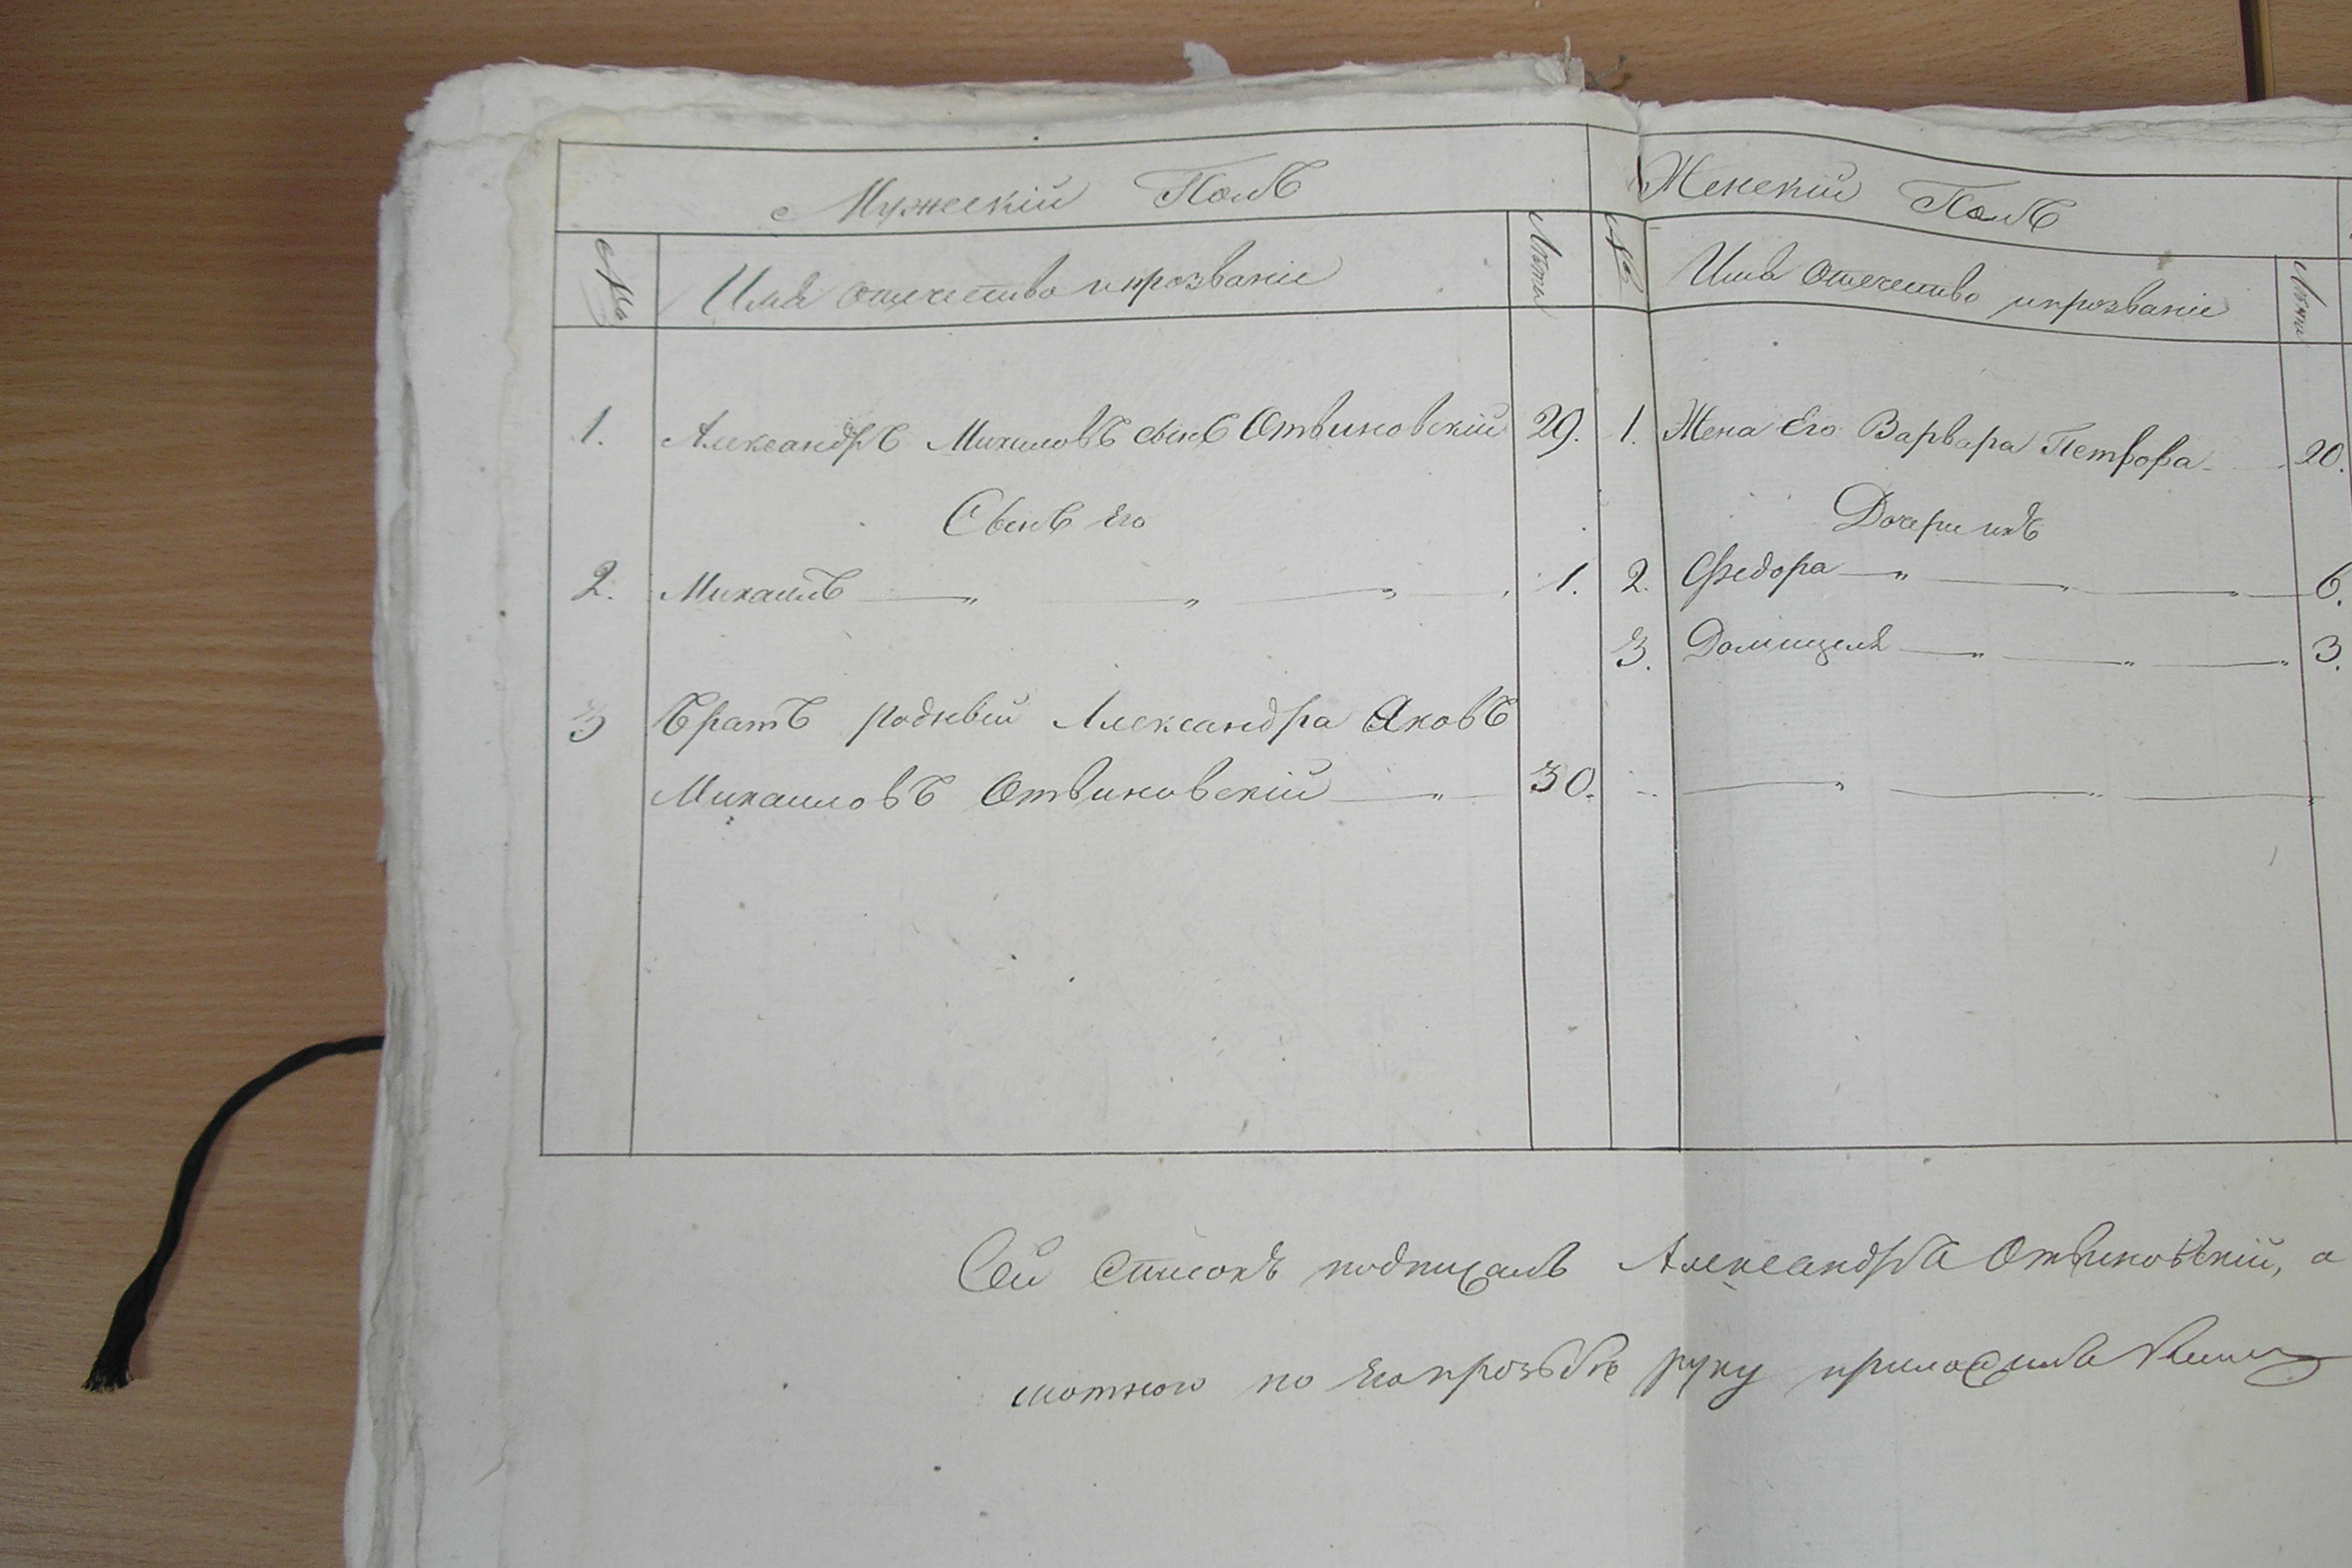 Мужескій Полъ
Женскій Полъ
№
Имя отечество и прозваніе
Лѣты
№
Имя Отечество и прозваніе
Лѣты
1. Александръ Михаиловъ сынъ Отвиновскій 29.
1. Жена Его Варвара Петрова 20.
Сынъ его
Дочери ихъ
2. Михаилъ — „ — „ — „ — 1.
2. Федора — „ — „ — „ — 6.
3. Домицеля — „ — „ — „ 3.
3 Братъ родный Александра Яковъ
Михаиловъ Отвиновскій — „ — 30.
Сей Списокъ подписалъ Александръ Отвиновскій, а
мотного по Его прозьбѣ руку приложилъ